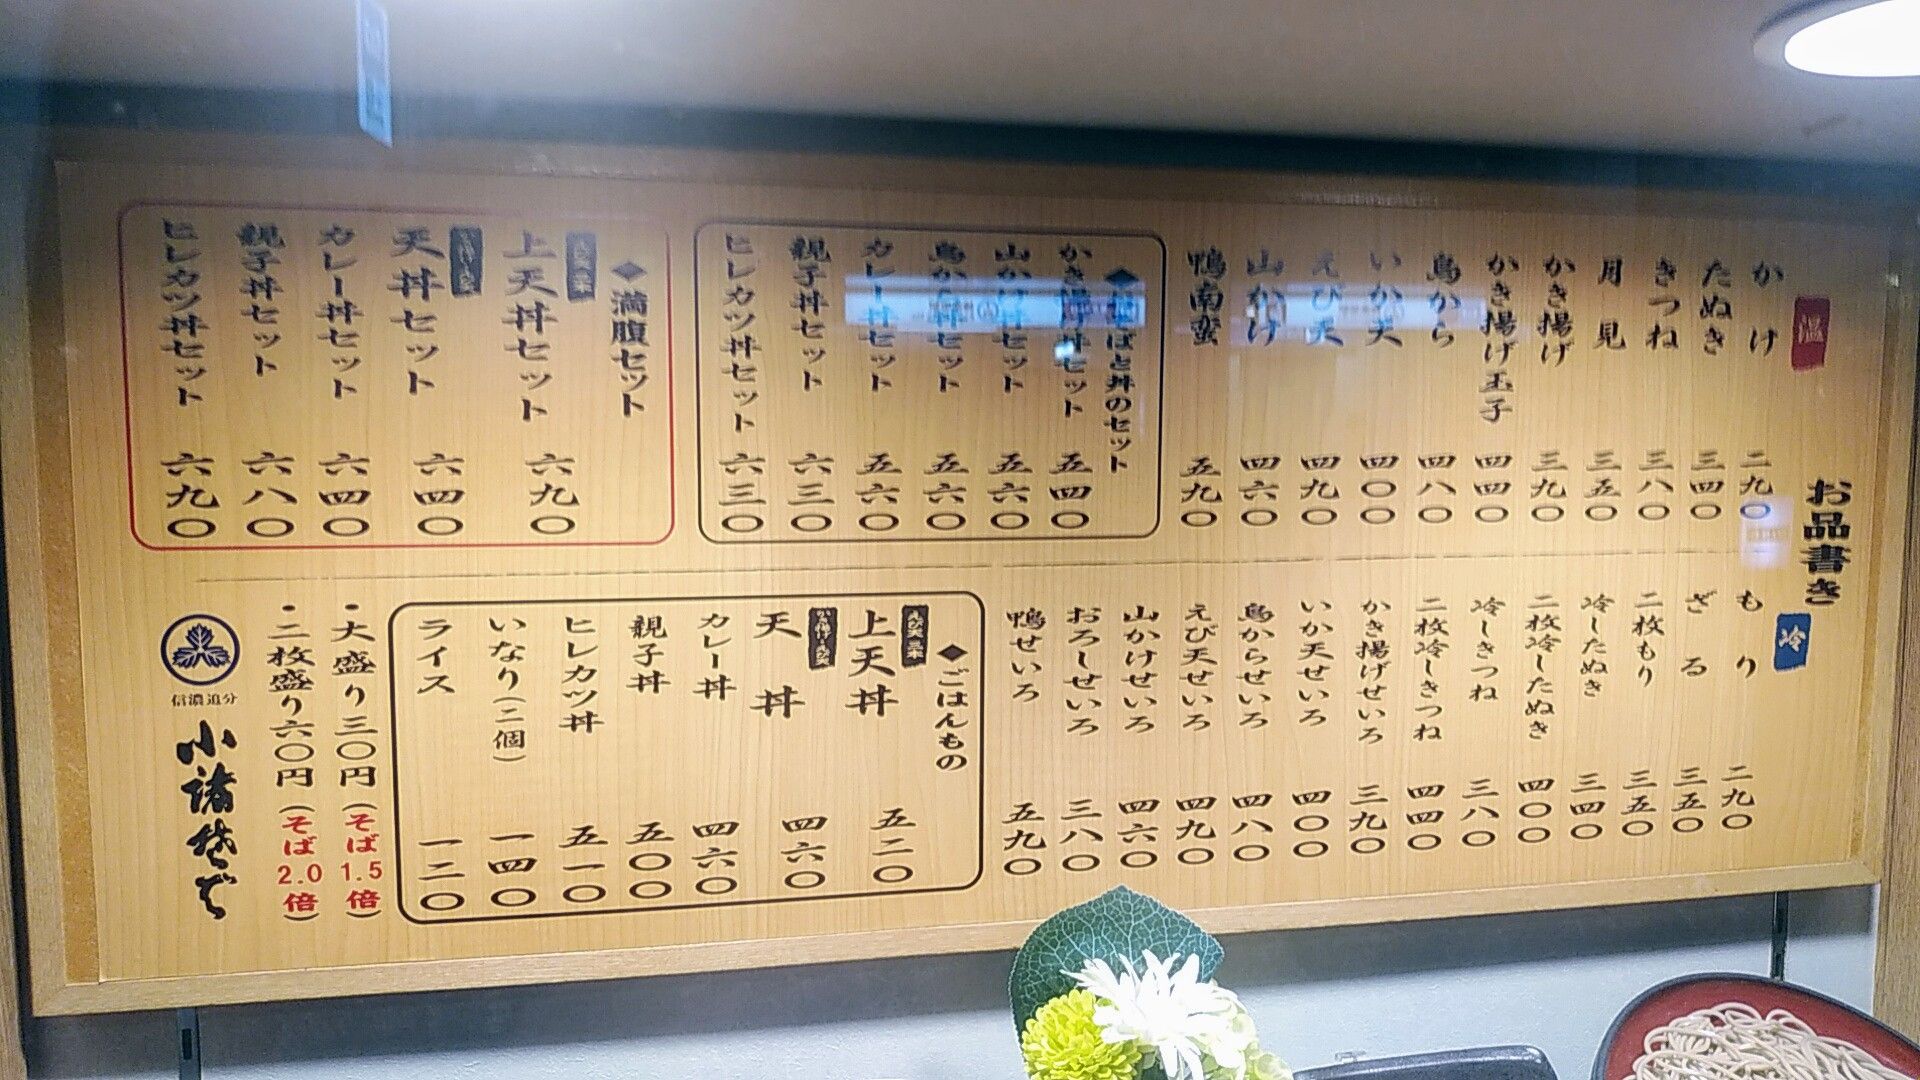 お品書き
温
かけ 二九〇
たぬき 三四〇
きつね 三八〇
月見 三五〇
かき揚げ 三九〇
かき揚げ玉子 四四〇
鳥から 四八〇
いか天 四〇〇
えび天 四九〇
山かけ 四六〇
鴨南蛮 五九〇
◆そばと丼のセット
かき揚げ丼セット 五四〇
山かけ丼セット 五六〇
鳥から丼セット 五六〇
カレー丼セット 五六〇
親子丼セット 六三〇
ヒレカツ丼セット 六三〇
◆満腹セット
上天丼セット 六九〇
天丼セット 六四〇
カレー丼セット 六四〇
親子丼セット 六八〇
ヒレカツ丼セット 六九〇
冷
もり 二九〇
ざる 三五〇
二枚もり 三五〇
冷したぬき 三四〇
二枚冷したぬき 四〇〇
冷しきつね 三八〇
二枚冷しきつね 四四〇
かき揚げせいろ 三九〇
いか天せいろ 四〇〇
鳥からせいろ 四八〇
えび天せいろ 四九〇
山かけせいろ 四六〇
おろしせいろ 三八〇
鴨せいろ 五九〇
◆ごはんもの
えび天二本
上天丼 五二〇
かき揚げ・えび天
天丼 四六〇
カレー丼 四六〇
親子丼 五〇〇
ヒレカツ丼 五一〇
いなり(二個) 一四〇
ライス 一二〇
・大盛り三〇円(そば1.5倍)
・二枚盛り六〇円(そば2.0倍)
信濃追分
小諸そば